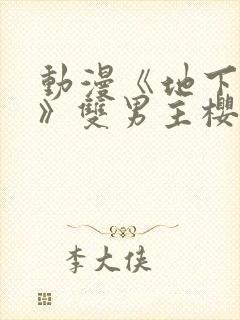 動漫《地下
》雙男主櫻
李大俠